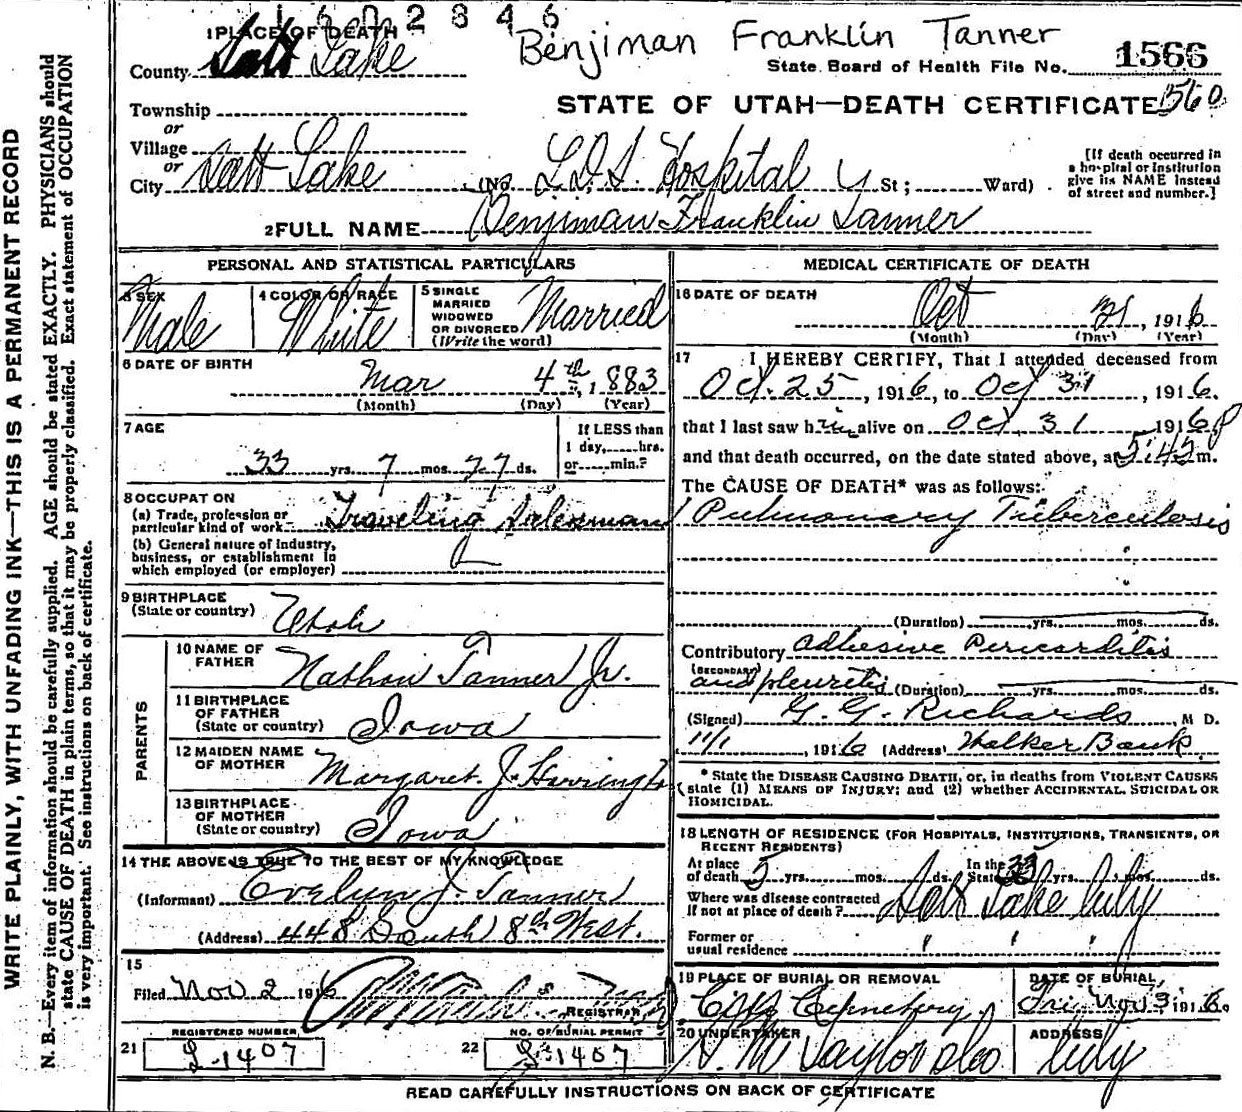 1602346
1 PLACE OF DEATH
Benjiman Franklin Tanner
County Salt Lake
State Board of Health File No. 1566
Township
STATE OF UTAH—DEATH CERTIFICATE 560
or
Village
or
City Salt Lake (No. L.D.S. Hospital St; Ward)
[If death occurred in a hospital or institution give its NAME instead of street and number.]
2 FULL NAME Benjiman Franklin Tanner
PERSONAL AND STATISTICAL PARTICULARS
3 SEX Male
4 COLOR OR RACE White
5 SINGLE MARRIED WIDOWED OR DIVORCED (Write the word) Married
6 DATE OF BIRTH Mar 4th, 1883
(Month) (Day) (Year)
7 AGE 33 yrs. 7 mos. 27 ds.
If LESS than 1 day, hrs. or min.?
8 OCCUPATION
(a) Trade, profession or particular kind of work Traveling Salesman
(b) General nature of industry, business, or establishment in which employed (or employer)
9 BIRTHPLACE (State or country) Utah
PARENTS
10 NAME OF FATHER Nathan Tanner Jr.
11 BIRTHPLACE OF FATHER (State or country) Iowa
12 MAIDEN NAME OF MOTHER Margaret J. Harrington
13 BIRTHPLACE OF MOTHER (State or country) Iowa
14 THE ABOVE IS TRUE TO THE BEST OF MY KNOWLEDGE
(Informant) Evelyn J. Tanner
(Address) 448 South 8th West.
15
Filed Nov 2 1916
REGISTRAR
REGISTERED NUMBER
21 L-1407
NO. OF BURIAL PERMIT
22 L-1407
MEDICAL CERTIFICATE OF DEATH
16 DATE OF DEATH Oct 31, 1916
(Month) (Day) (Year)
17 I HEREBY CERTIFY, That I attended deceased from
Oct. 25, 1916, to Oct 31, 1916.
that I last saw him alive on Oct, 31 1916
and that death occurred, on the date stated above, at 5:45 P m.
The CAUSE OF DEATH* was as follows:
Pulmonary Tuberculosis
(Duration) yrs. mos. ds.
Contributory Adhesive Pericarditis
(SECONDARY) and pleuritis (Duration) yrs. mos. ds.
(Signed) G. G. Richards, M D.
11/1, 1916 (Address) Walker Bank
* State the DISEASE CAUSING DEATH, or, in deaths from VIOLENT CAUSES state (1) MEANS OF INJURY; and (2) whether ACCIDENTAL, SUICIDAL OR HOMICIDAL.
18 LENGTH OF RESIDENCE (FOR HOSPITALS, INSTITUTIONS, TRANSIENTS, OR RECENT RESIDENTS)
At place of death 5 yrs. mos. ds. In the State 33 yrs. mos. ds.
Where was disease contracted if not at place of death? Salt Lake City
Former or usual residence " " "
19 PLACE OF BURIAL OR REMOVAL City Cemetery
DATE OF BURIAL, Fri Nov 3, 1916.
20 UNDERTAKER S M Taylor & Co
ADDRESS City
READ CAREFULLY INSTRUCTIONS ON BACK OF CERTIFICATE
WRITE PLAINLY, WITH UNFADING INK—THIS IS A PERMANENT RECORD
N. B.—Every item of information should be carefully supplied. AGE should be stated EXACTLY. PHYSICIANS should
state CAUSE OF DEATH in plain terms, so that it may be properly classified. Exact statement of OCCUPATION
is very important. See instructions on back of certificate.